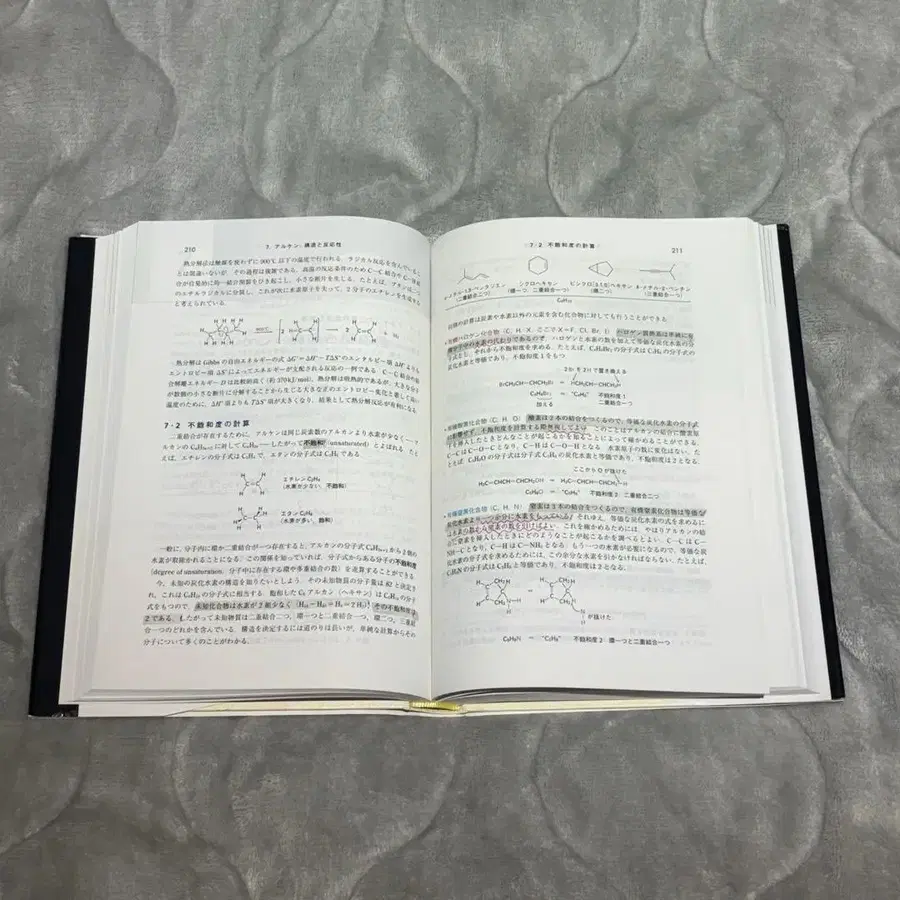 210
7. アルケン: 構造と反応性
熱分解は触媒を使わずに900℃以下の温度で行われる. ラジカル反応を含んでいるこ
とは間違いないが, その過程は複雑である. 高温の反応条件のため C−C 結合や C−H 結
合が自発的に均一結合開裂をひき起こし, 小さな断片を生じる. たとえば, ブタンは二つ
のエチルラジカルに分裂し, これが次に水素原子を失って, 2分子のエチレンを生成する
と考えられている.
900℃
2
H₂
熱分解は Gibbs の自由エネルギーの式 ΔG°=ΔH°−TΔS° のエンタルピー項 ΔH° よりも
エントロピー項 ΔS° によってエネルギーが支配される反応の一例である. C−C 結合の結
合解離エネルギー D は比較的高く (約370 kJ/mol), 熱分解は吸熱的であるが, 大きな分子
が数個の小さな断片に分解することから生じる大きな正のエントロピー変化と著しく高い
温度のために, ΔH° 項よりも TΔS° 項が大きくなり, 結果として熱分解反応が有利になる.
7・2 不飽和度の計算
二重結合が存在するために, アルケンは同じ炭素数のアルカンより水素が少なく――ア
ルカンの CₙH₂ₙ₊₂ に対して CₙH₂ₙ――したがって不飽和 (unsaturated) とよばれる. たと
えば, エチレンの分子式は C₂H₄ で, エタンの分子式は C₂H₆ である.
エチレン C₂H₄
(水素が少ない, 不飽和)
エタン C₂H₆
(水素が多い, 飽和)
一般に, 分子内に環か二重結合が一つ存在すると, アルカンの分子式 CₙH₂ₙ₊₂ から2個の
水素が取除かれることになる. この関係を知っていれば, 分子式からある分子の不飽和度
(degree of unsaturation: 分子中に存在する環や多重結合の数) を逆算することができる.
今, 未知の炭化水素の構造を知りたいとしよう. その未知物質の分子量は 82 と決定さ
れ, これは C₆H₁₀ の分子式に相当する. 飽和した C₆ アルカン (ヘキサン) は C₆H₁₄ の分子
式をもつので, 未知化合物は水素が2組少なく (H₁₄ − H₁₀ = H₄ = 2 H₂), その不飽和度は
2である. したがって未知物質は二重結合二つ, 環一つと二重結合一つ, 環二つ, 三重結
合一つのどれかを含んでいる. 構造を決定するには道のりは長いが, 単純な計算からその
分子について多くのことがわかる.
7・2 不飽和度の計算
211
4-メチル-1,3-ペンタジエン
(二重結合二つ)
シクロヘキセン
(環一つ, 二重結合一つ)
ビシクロ[3.1.0]ヘキサン
(環二つ)
4-メチル-2-ペンチン
(三重結合一つ)
C₆H₁₀
同様の計算は炭素や水素以外の元素を含む化合物に対しても行うことができる.
有機ハロゲン化合物 (C, H, X, ここで X=F, Cl, Br, I)
2か を 2H で置き換える
BrCH₂CH=CHCH₂Br = HCH₂CH=CHCH₂H
C₄H₆Br₂ = “C₄H₈” 不飽和度 1
加える 二重結合一つ
有機酸素化合物 (C, H, O) 酸素は2本の結合をつくるので, 等価な炭化水素の分子式
には影響せず, 不飽和度を計算する際無視してよい. このことはアルカンの結合に酸素原
子を挿入したときどんなことが起こるかを知ることによって確かめることができる.
C−C は C−O−C となり, C−H は C−O−H となる. 水素原子の数に変化はない. た
とえば, C₄H₆O の分子式は分子式 C₄H₆ の炭化水素と等価であり, 不飽和度は2となる.
ここから O が抜けた
H₂C=CHCH=CHCH₂OH = H₂C=CHCH=CHCH₂−H
不飽和度 2: 二重結合二つ
有機窒素化合物 (C, H, N) 窒素は3本の結合をつくるので, 有機窒素化合物は等価な
炭化水素より一つ余分に水素をもっている. それゆえ, 等価な炭化水素の式を求めるに
は水素の数から窒素の数を引けばよい. これを確かめるためには, やはりアルカンの結
合に窒素を挿入したときにどのようなことが起こるかを調べるとよい. C−C は C−
NH−C となり, C−H は C−NH₂ となる. もう一つの水素が必要になるので, 等価な炭
化水素の分子式を求めるためには, この余分な水素を引かなければならない. たとえば,
C₅H₉N の分子式は C₅H₈ と等価であり, 不飽和度は2となる.
が抜けた
C₅H₉N = “C₅H₈” 不飽和度 2: 環一つと二重結合一つ